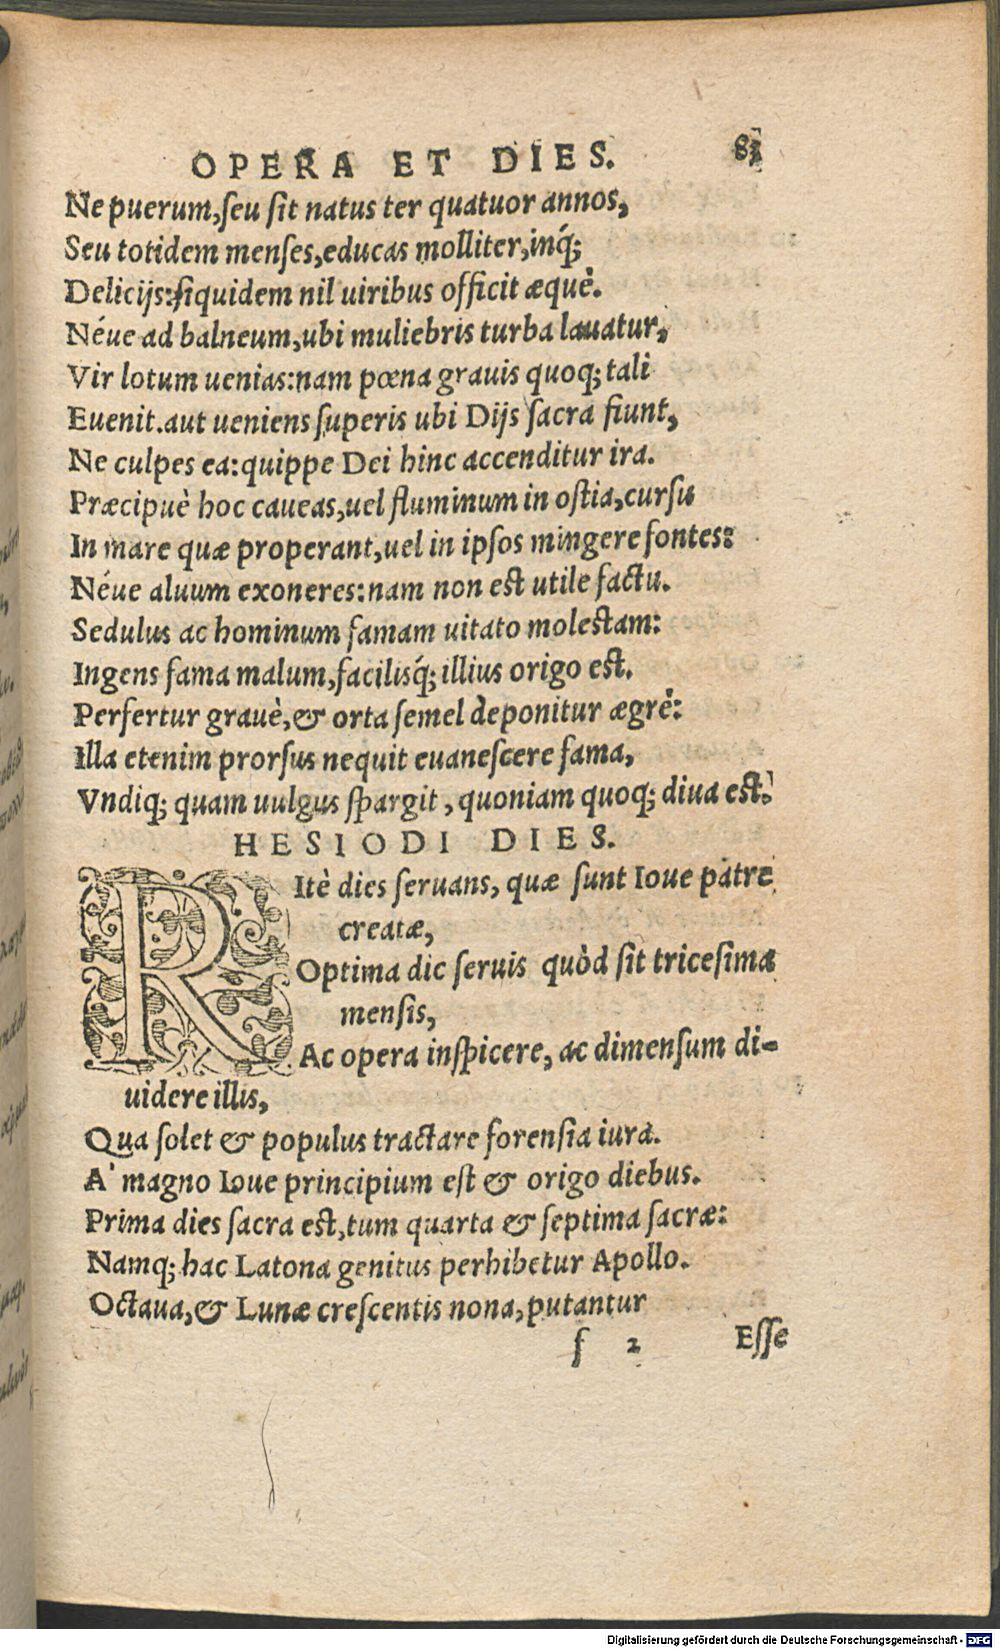 OPERA ET DIES. 83
Ne puerum, seu sit natus ter quatuor annos,
Seu totidem menses, educas molliter, inq́;
Delicijs: siquidem nil uiribus officit æquè.
Néue ad balneum, ubi muliebris turba lauatur,
Vir lotum uenias: nam pœna grauis quoq; tali
Euenit. aut ueniens superis ubi Dijs sacra fiunt,
Ne culpes ea: quippe Dei hinc accenditur ira.
Præcipuè hoc caueas, uel fluminum in ostia, cursu
In mare quæ properant, uel in ipsos mingere fontes:
Néue aluum exoneres: nam non est utile factu.
Sedulus ac hominum famam uitato molestam:
Ingens fama malum, facilisq́; illius origo est.
Perfertur grauè, & orta semel deponitur ægrè:
Illa etenim prorsus nequit euanescere fama,
Vndiq; quam uulgus spargit, quoniam quoq; diua est.
HESIODI DIES.
RItè dies seruans, quæ sunt Ioue patre
creatæ,
Optima dic seruis quòd sit tricesima
mensis,
Ac opera inspicere, ac dimensum di-
uidere illis,
Qua solet & populus tractare forensia iura.
A' magno Ioue principium est & origo diebus.
Prima dies sacra est, tum quarta & septima sacræ:
Namq; hac Latona genitus perhibetur Apollo.
Octaua, & Lunæ crescentis nona, putantur
f 2 Esse
Digitalisierung gefördert durch die Deutsche Forschungsgemeinschaft - DFG